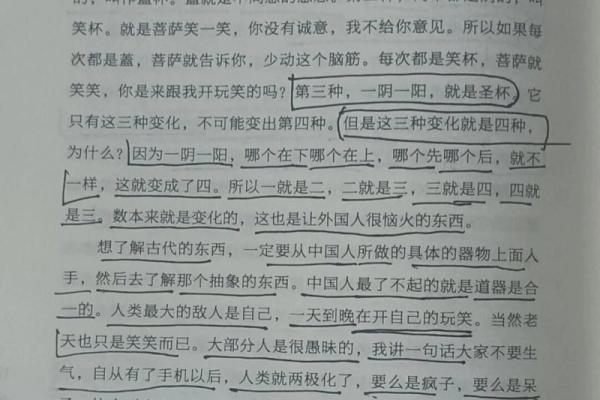 的，叫作盖杯。盖就是不同意的意思。
笑杯。就是菩萨笑一笑，你没有诚意，我不给你意见。所以如果每
次都是蓋，菩萨就告诉你，少动这个脑筋。每次都是笑杯，菩萨就
笑笑，你是来跟我开玩笑的吗？第三种，一阴一阳，就是圣杯。它
只有这三种变化，不可能变出第四种。但是这三种变化就是四种，
为什么？因为一阴一阳，哪个在下哪个在上，哪个先哪个后，就不
一样，这就变成了四。所以一就是二，二就是三，三就是四，四就
是三。数本来就是变化的，这也是让外国人很恼火的东西。
想了解古代的东西，一定要从中国人所做的具体的器物上面入
手，然后去了解那个抽象的东西。中国人最了不起的就是道器是合
一的。人类最大的敌人是自己，一天到晚在开自己的玩笑。当然老
天也只是笑笑而已。大部分人是很愚昧的，我讲一句话大家不要生
气，自从有了手机以后，人类就两极化了，要么是疯子，要么是呆